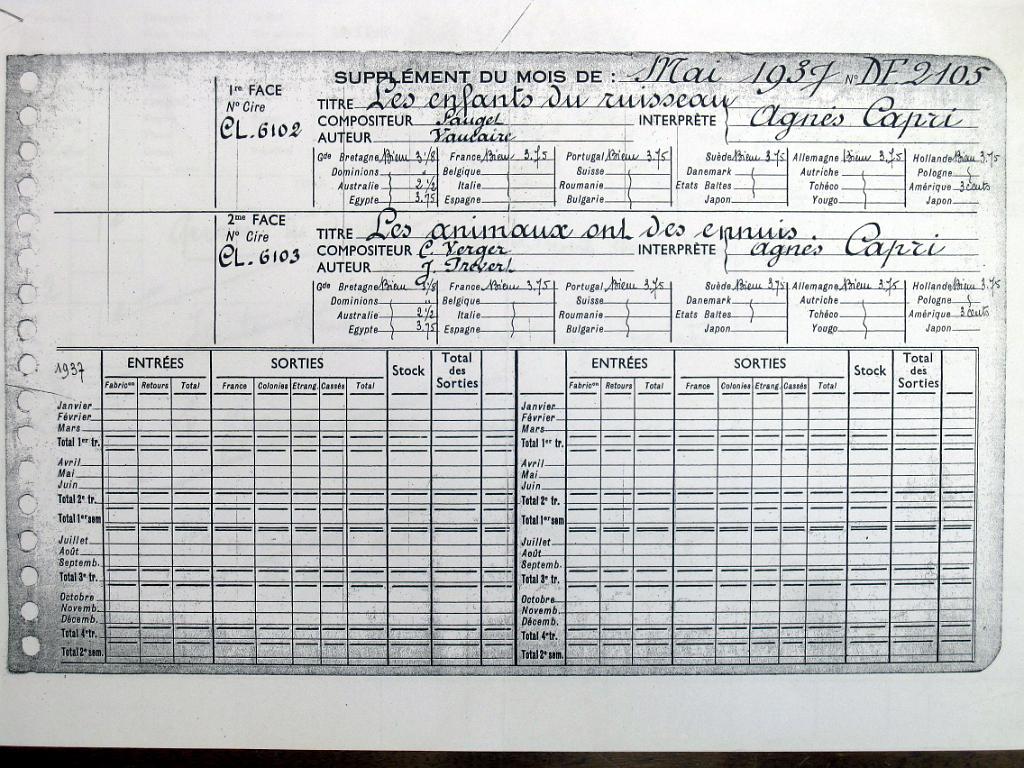 SUPPLÉMENT DU MOIS DE : Mai 1937 N° DF 2105
1re FACE
N° Cire
CL.6102
TITRE Les enfants du ruisseau
COMPOSITEUR Sauget INTERPRÈTE Agnès Capri
AUTEUR Vaucaire
Gde Bretagne Bien 3 1/8 France Bien 3.75 Portugal Bien 3.75 Suède Bien 3.75 Allemagne Bien 3.75 Hollande Bien 3.75
Dominions " Belgique Suisse Danemark Autriche Pologne
Australie 2 1/2 Italie Roumanie Etats Baltes Tchéco Amérique 3 cents
Egypte 3.75 Espagne Bulgarie Japon Yougo
2me FACE
N° Cire
CL.6103
TITRE Les animaux ont des ennuis
COMPOSITEUR C. Verger INTERPRÈTE Agnès Capri
AUTEUR J. Prévert
Gde Bretagne Bien 3/8 France Bien 3.75 Portugal Bien 3.75 Suède Bien 3.75 Allemagne Bien 3.75 Hollande Bien 3.75
Dominions " Belgique Suisse Danemark Autriche Pologne
Australie 2 1/2 Italie Roumanie Etats Baltes Tchéco Amérique 3 cents
Egypte 3.75 Espagne Bulgarie Japon Yougo Japon
1937 ENTRÉES SORTIES Stock Total des Sorties ENTRÉES SORTIES Stock Total des Sorties
Fabricon Retours Total France Colonies Etrang. Cassés Total Fabricon Retours Total France Colonies Etrang. Cassés Total
Janvier Janvier
Février Février
Mars Mars
Total 1er tr. Total 1er tr.
Avril Avril
Mai Mai
Juin Juin
Total 2e tr. Total 2e tr.
Total 1er sem Total 1er sem
Juillet Juillet
Août Août
Septemb. Septemb.
Total 3e tr. Total 3e tr.
Octobre Octobre
Novemb. Novemb.
Décemb. Décemb.
Total 4e tr. Total 4e tr.
Total 2e sem. Total 2e sem.